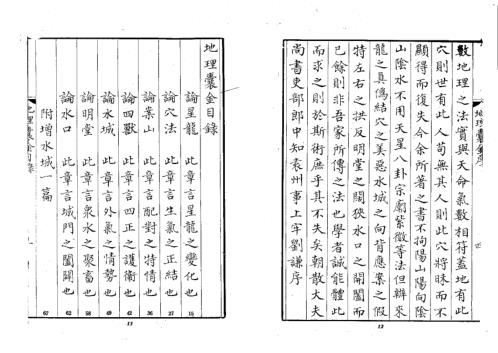 數地理之法實與天命氣數相符蓋地有此
穴則世有此人苟無其人則此穴將昧而不
顯得而復失今余所著之書不拘陽山陽向陰
山陰水不用天星八卦宗廟紫微等法但辦來
龍之真僞結穴之美惡水城之向背應案之假
特左右之拱反明堂之闊狹水口之開闔而
已餘則非吾家所傳之法也學者誠能體此
而求之則於斯術庶乎其不失矣朝散大夫
尚書吏部郎中知袁州事上牢劉謙序
地理囊金序
四
12
地理囊金目錄
論星龍 此章言星龍之變化也 16
論穴法 此章言生氣之正結也 27
論案山 此章言配對之特情也 36
論四獸 此章言四正之護衛也 42
論水城 此章言外氣之情勢也 49
論明堂 此章言衆水之聚畜也 58
論水口 此章言城門之關闌也 62
附增水城一篇 67
地理囊金目錄
一
13